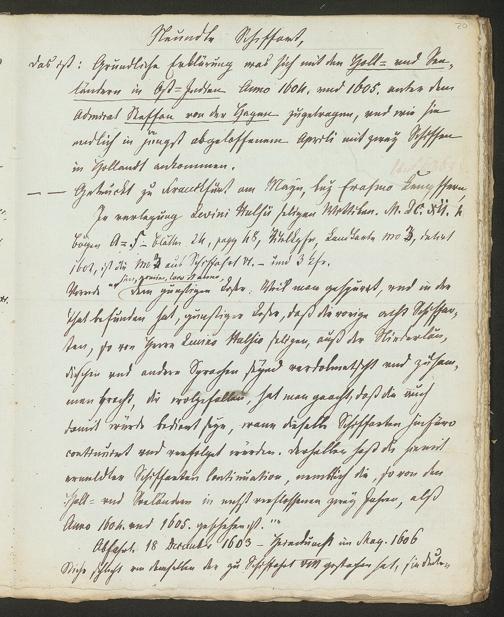 20
Neundte Schiffart,
das ist: Gründliche Erklärung was sich mit den Holl= und See,,
ländern in Ost=Indien Anno 1604. und 1605. unter dem
Admiral Steffan von der Hagen zugetragen, und wie sie
endlich in jüngst abgeloffenem Aprili mit zwey Schiffen
in Hollandt ankommen.
— — Gedruckt zu Franckfurt am Mayn, bey Erasmo Kempffern,
In verlegung Levini Hulsij seligen Wittiben. M. DC. VI. 4
bogen A=F= Blätter 24, pagg 48, Landkarte No 3, datirt
1602, ist die No 3 aus Schiffahrt — und 3 Kpfr.
Vorrede dem günstigen Leser. Weil man gespüret, und in der
That befunden hat, günstiger Leser, daß die vorige acht Schiffar,,
ten, so von Herrn Levino Hulsio seligen, auß der Niderlän,,
dischen und andern Sprachen seynd verdolmetscht und zusam,,
men bracht, die wolgefallen, hat man geacht, daß dir auch
damit würde bedient seyn, wann dieselbe Schiffarten hinfüro
continuirt und verfolgt würden. Derhalben hast du hiemit
vermeldter Schiffarten Continuation, nemblich die, so von den
Holl= und Seeländern in nechst verflossenen zwey Jahren, alß
Anno 1604. und 1605. geschehen ist. "
Abfahrt 18 December 1603 – Heimkunft im May. 1606